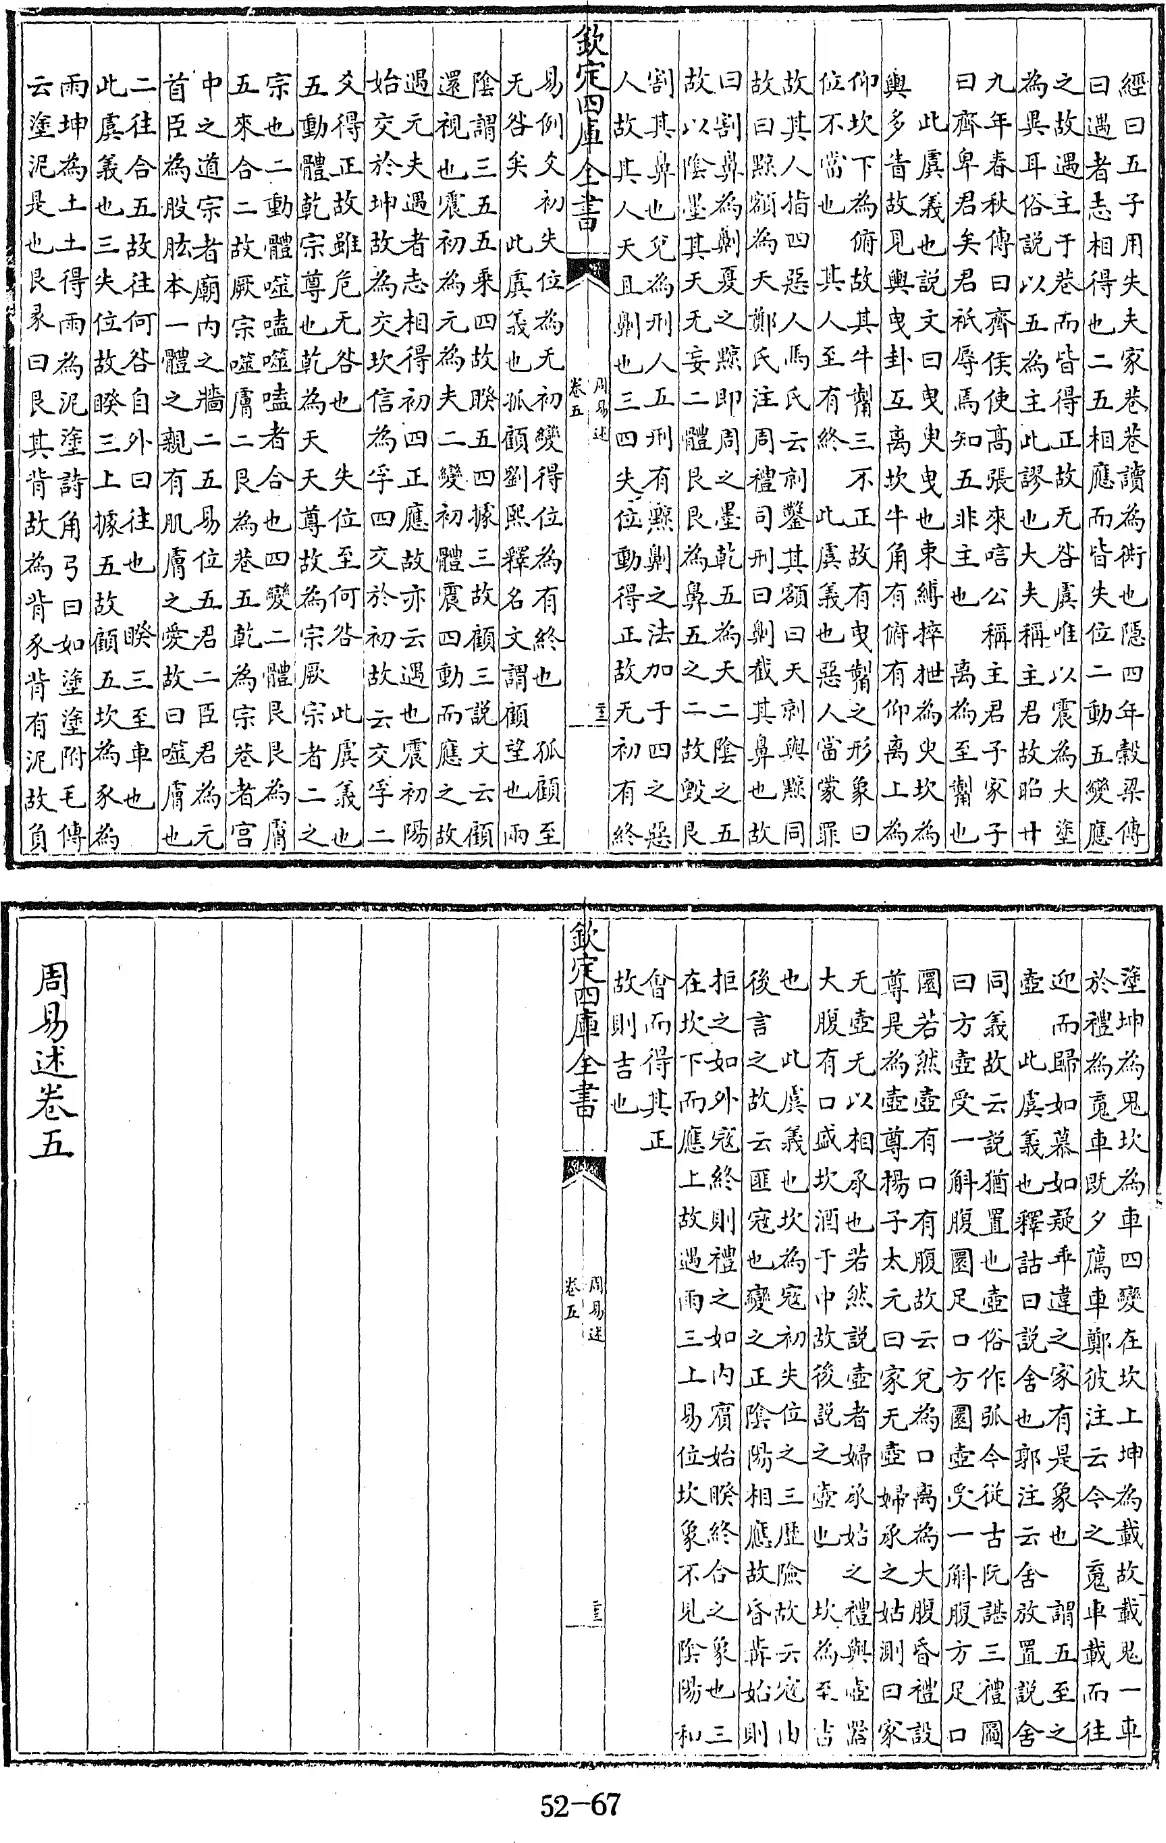 經曰五子用失夫家巷巷讀為衖也隱四年榖梁傳
曰遇者志相得也二五相應而皆失位二動五變應
之故遇主于巷而皆得正故无咎虞唯以震為大塗
為異耳俗說以五為主此謬也大夫稱主君故昭廿
九年春秋傳曰齊侯使髙張來唁公稱主君子家子
曰齊卑君矣君祇辱焉知五非主也　離為至觢也
此虞義也說文曰曳臾曳也束縛捽抴為臾坎為
輿多眚故見輿曳卦互離坎牛角有俯有仰離上為
仰坎下為俯故其牛觢三不正故有曳觢之形象曰
位不當也　其人至有終　此虞義也惡人當蒙罪
故其人指四惡人馬氏云剠鑿其額曰天剠與黥同
故曰黥額為天鄭氏注周禮司刑曰劓截其鼻也故
曰割鼻為劓夏之黥即周之墨乾五為天二陰之五
故以陰墨其天无妄二體艮艮為鼻五之二故毀艮
割其鼻也兊為刑人五刑有黥劓之法加于四之惡
人故其人天且劓也三四失位動得正故无初有終
欽定四庫全書
周易述
卷五
易例爻初失位為无初變得位為有終也　孤顧至
无咎矣　此虞義也孤顧劉熙釋名文謂顧望也兩
陰謂三五五乘四故睽五四據三故顧三說文云顧
還視也震初為元為夫二變初體震四動而應之故
遇元夫遇者志相得初四正應故亦云遇也震初陽
始交於坤故為交坎信為孚四交於初故云交孚二
爻得正故雖危无咎也　失位至何咎　此虞義也
五動體乾宗尊也乾為天天尊故為宗厥宗者二之
宗也二動體噬嗑噬嗑者合也四變二體艮艮為膚
五來合二故厥宗噬膚二艮為巷五乾為宗巷者宮
中之道宗者廟内之牆二五易位五君二臣君為元
首臣為股肱本一體之親有肌膚之愛故曰噬膚也
二往合五故往何咎自外曰往也　睽三至車也
此虞義也三失位故睽三上據五故顧五坎為豕為
雨坤為土土得雨為泥塗詩角弓曰如塗塗附毛傳
云塗泥是也艮彖曰艮其背故為背豕背有泥故負
塗坤為鬼坎為車四變在坎上坤為載故載鬼一車
於禮為䰟車既夕薦車鄭彼注云今之䰟車載而往
迎而歸如慕如疑乖違之家有是象也　謂五至之
壺　此虞義也釋詁曰說舍也郭注云舍放置說舍
同義故云說猶置也壺俗作弧今從古阮諶三禮圖
曰方壺受一斛腹圜足口方圜壺受一斛腹方足口
圜若然壺有口有腹故云兊為口離為大腹昏禮設
尊是為壺尊揚子太元曰家无壺婦承之姑測曰家
无壺无以相承也若然說壺者婦承姑之禮與壺器
大腹有口盛坎酒于中故後說之壺也　坎為至吉
也　此虞義也坎為寇初失位之三歷險故云寇由
後言之故云匪寇也變之正陰陽相應故昏冓始則
拒之如外寇終則禮之如内賓始睽終合之象也三
在坎下而應上故遇雨三上易位坎象不見陰陽和
會而得其正
故則吉也
欽定四庫全書
周易述
卷五
周易述卷五
52-67